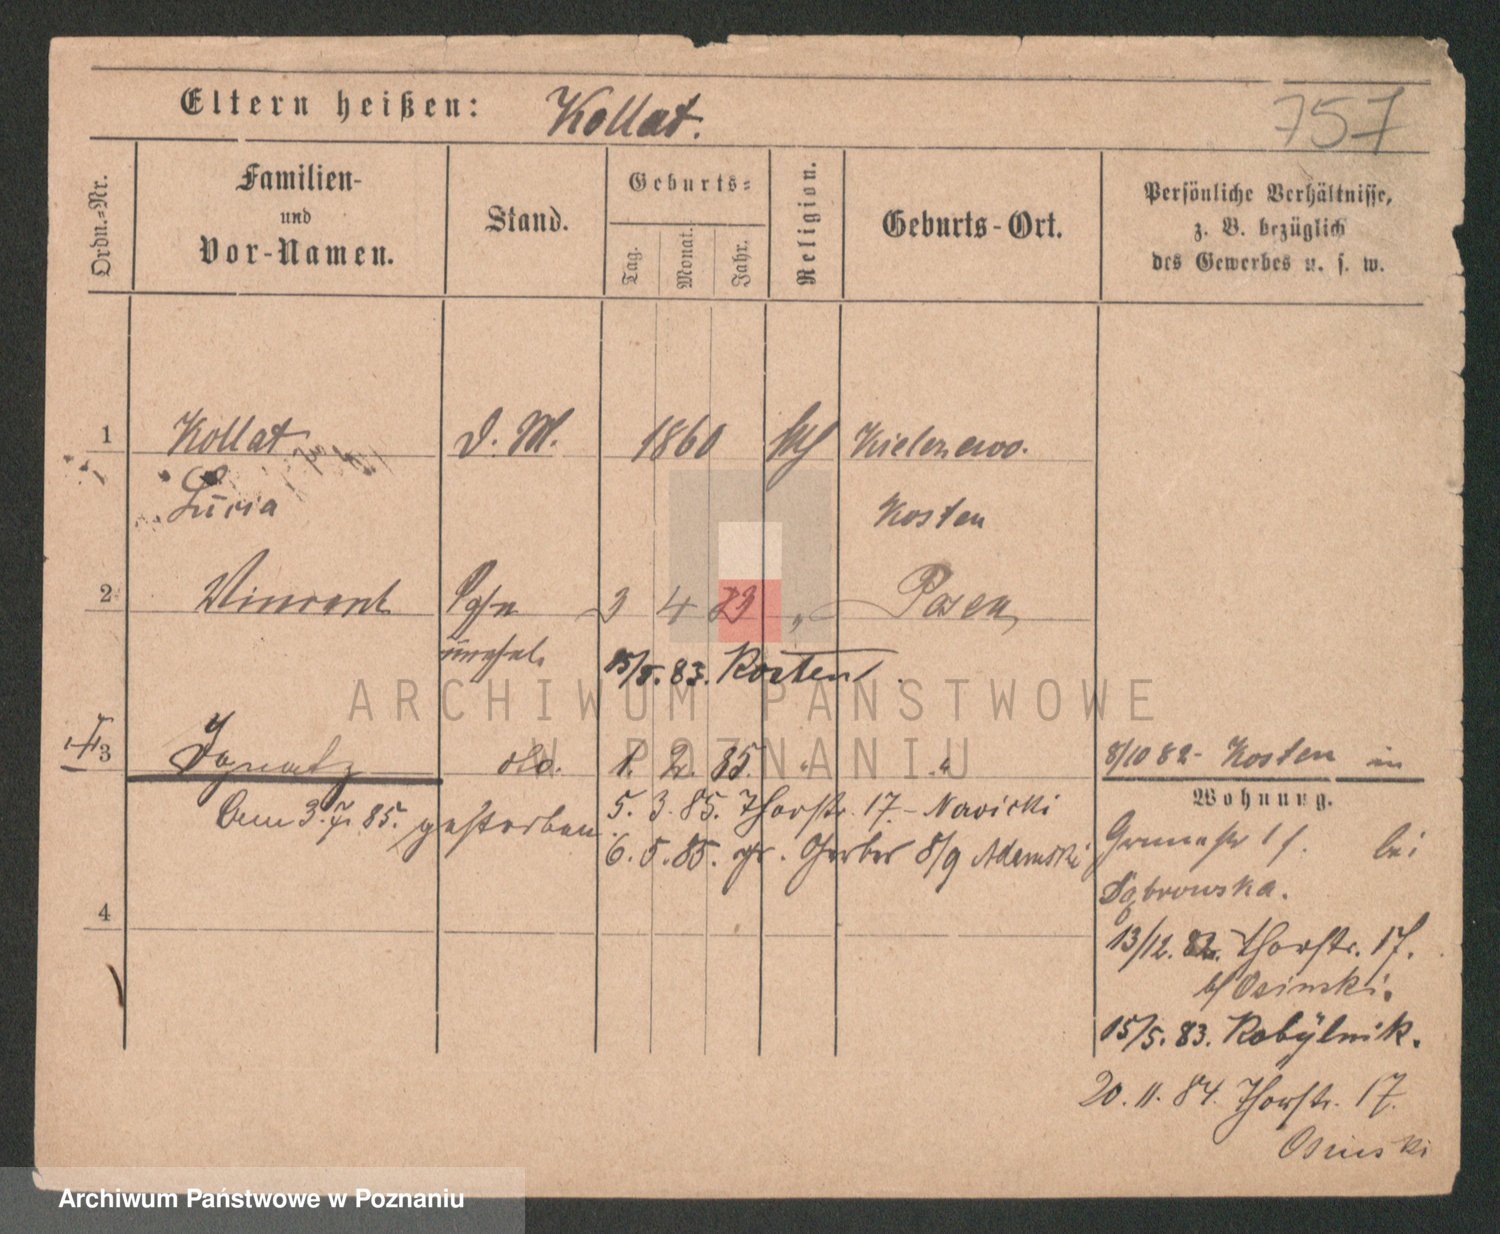 Eltern heißen: Kollat.
757
Ordn.=Nr.
Familien-
und
Vor-Namen.
Stand.
Geburts=
Tag.
Monat.
Jahr.
Religion.
Geburts-Ort.
Persönliche Verhältnisse,
z. B. bezüglich
des Gewerbes u. s. w.
1 Kollat D. M. 1860 kth Kielczewo.
Lucia Kosten
2 Vincent Sohn 3 4 83 „ Posen
unehel. 15/5. 83. Kosten
3 Ignatz do. 1. 2. 85. " "
8/10 82- Kosten in
Wohnung.
Den 3. 7. 85. gestorben.
5. 3. 85. Thorstr. 17.- Nowicki
6. 5. 85. gr. Gerber 8/9 Adamski
bei
Dąbrowska.
4
13/12. 82. Thorstr. 17.
b/ Osinski.
15/5. 83. Kobylnik.
20. 11. 84. Thorstr. 17.
Osinski
ARCHIWUM PAŃSTWOWE
W POZNANIU
Archiwum Państwowe w Poznaniu